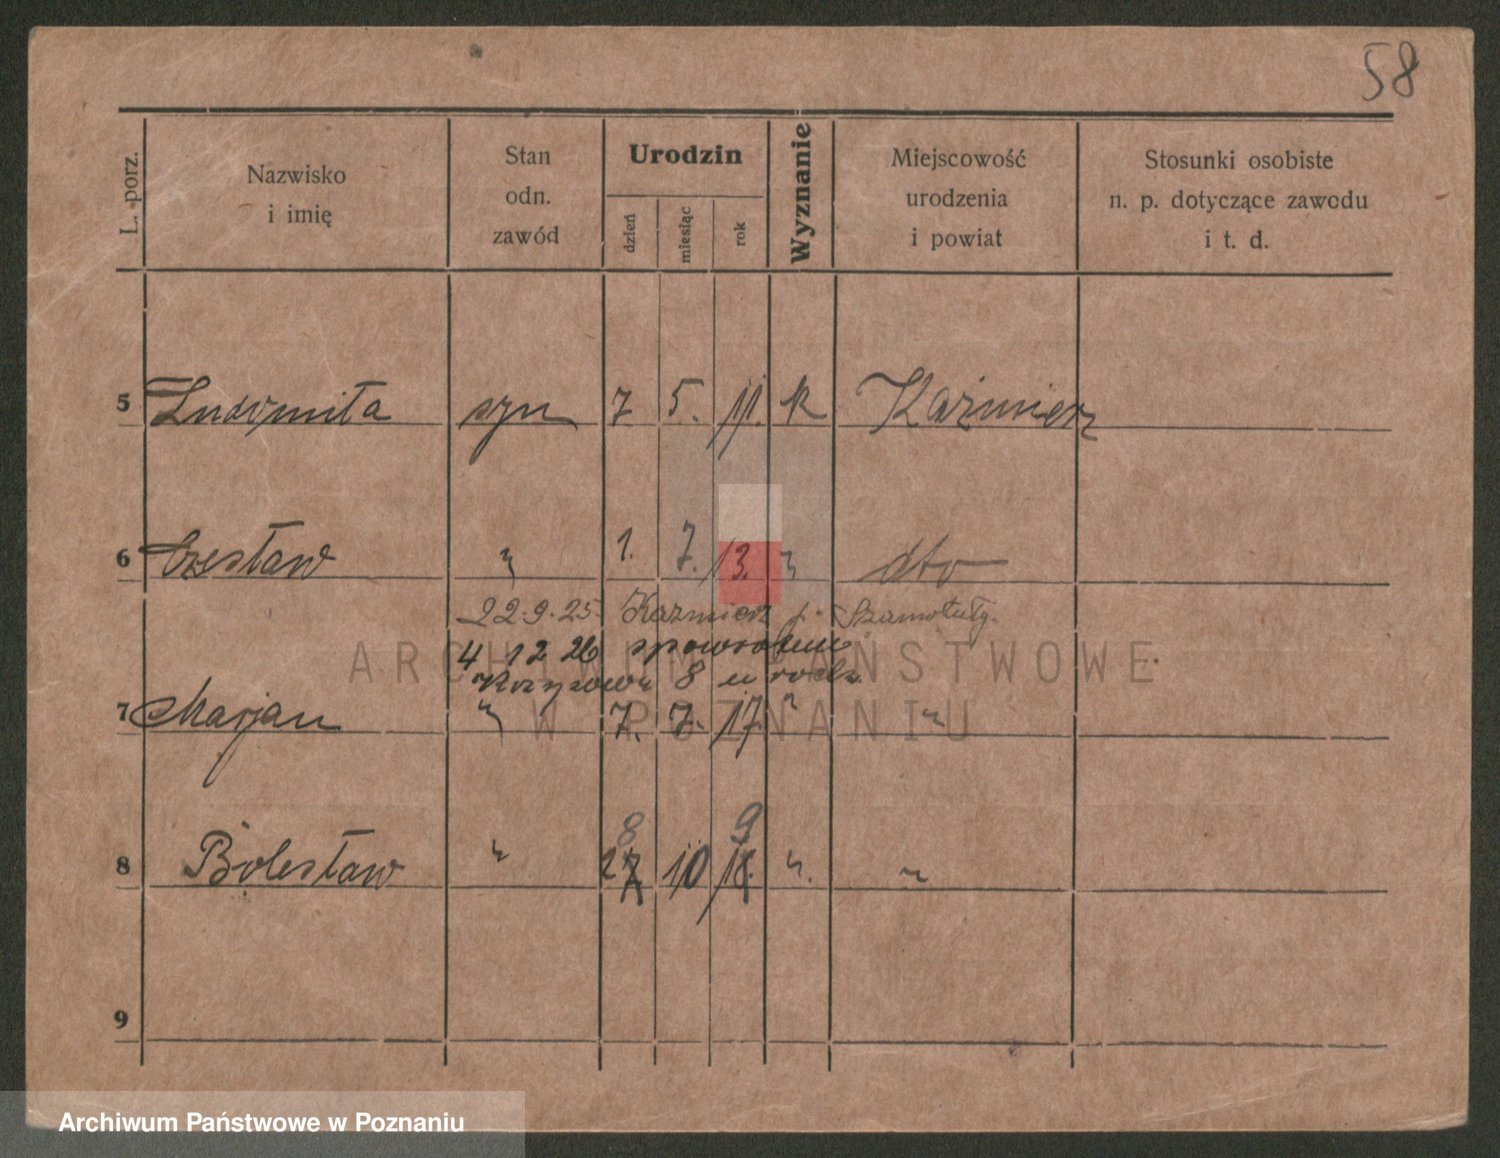 58
L. porz.
Nazwisko
i imię
Stan
odn.
zawód
Urodzin
dzień
miesiąc
rok
Wyznanie
Miejscowość
urodzenia
i powiat
Stosunki osobiste
n. p. dotyczące zawodu
i t. d.
5 Ludomiła syn 7 5. 11. k Kaźmierz
6 Czesław " 1. 7. 13. " dto
22.9.25. Kazmierz p. Szamotuły.
4 12 26 spowrotem
8 u
7 Marjan " 7. 7. 17. " "
8 9
8 Bolesław " 27 10 18. " "
9
ARCHIWUM PAŃSTWOWE
W POZNANIU
Archiwum Państwowe w Poznaniu